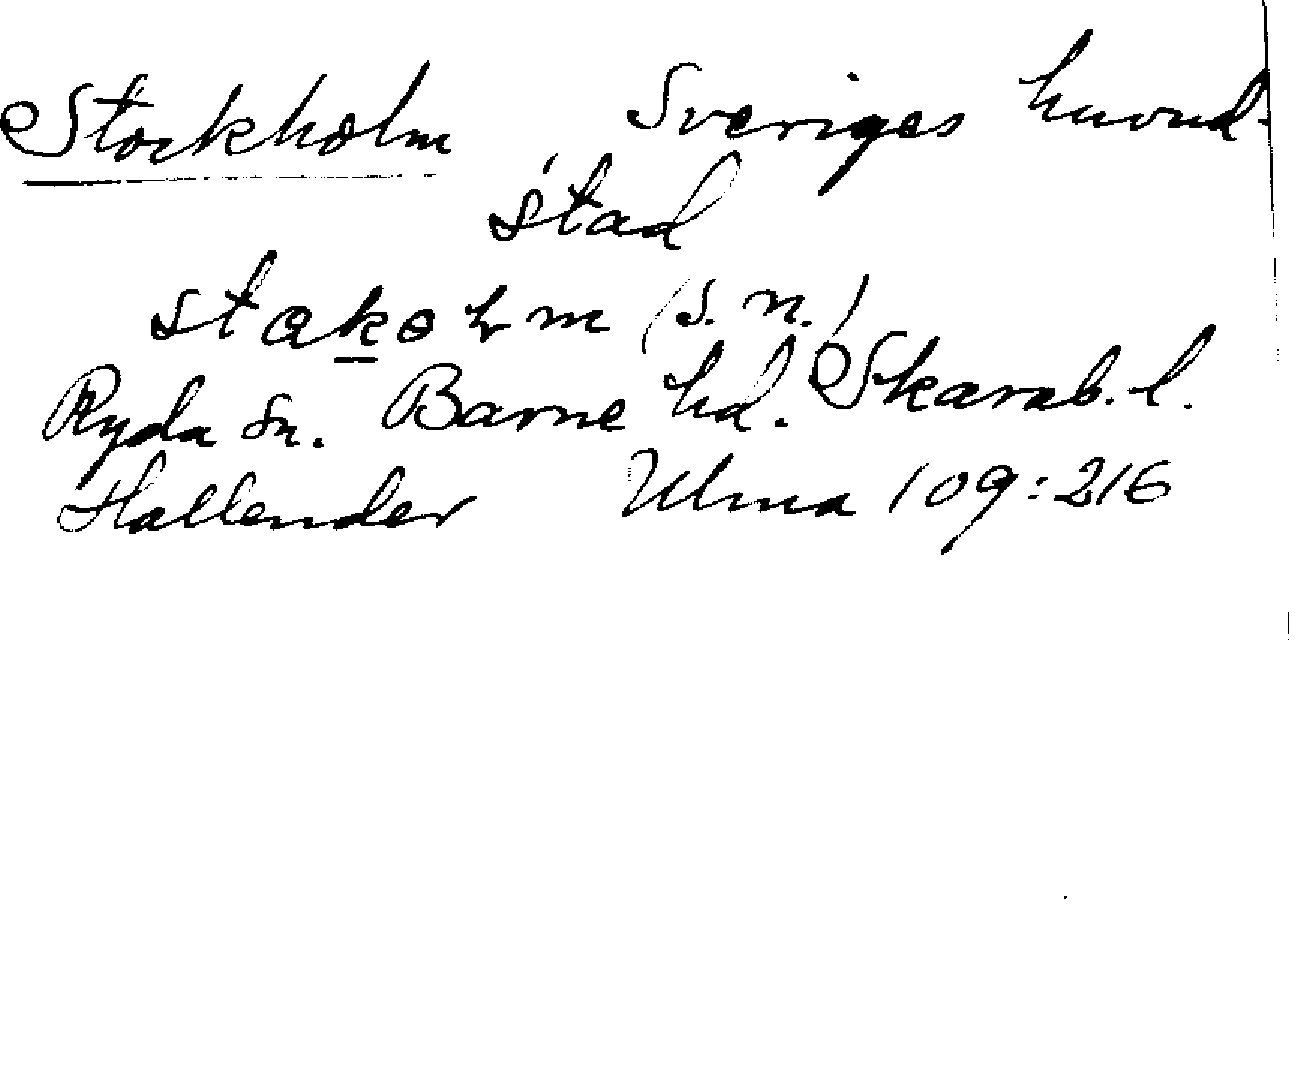 Stockholm Sveriges huvud-
stad
stakohm (s. n.)
Ryda sn. Barne hd. Skarab. l.
Hallender Ulma 109:216